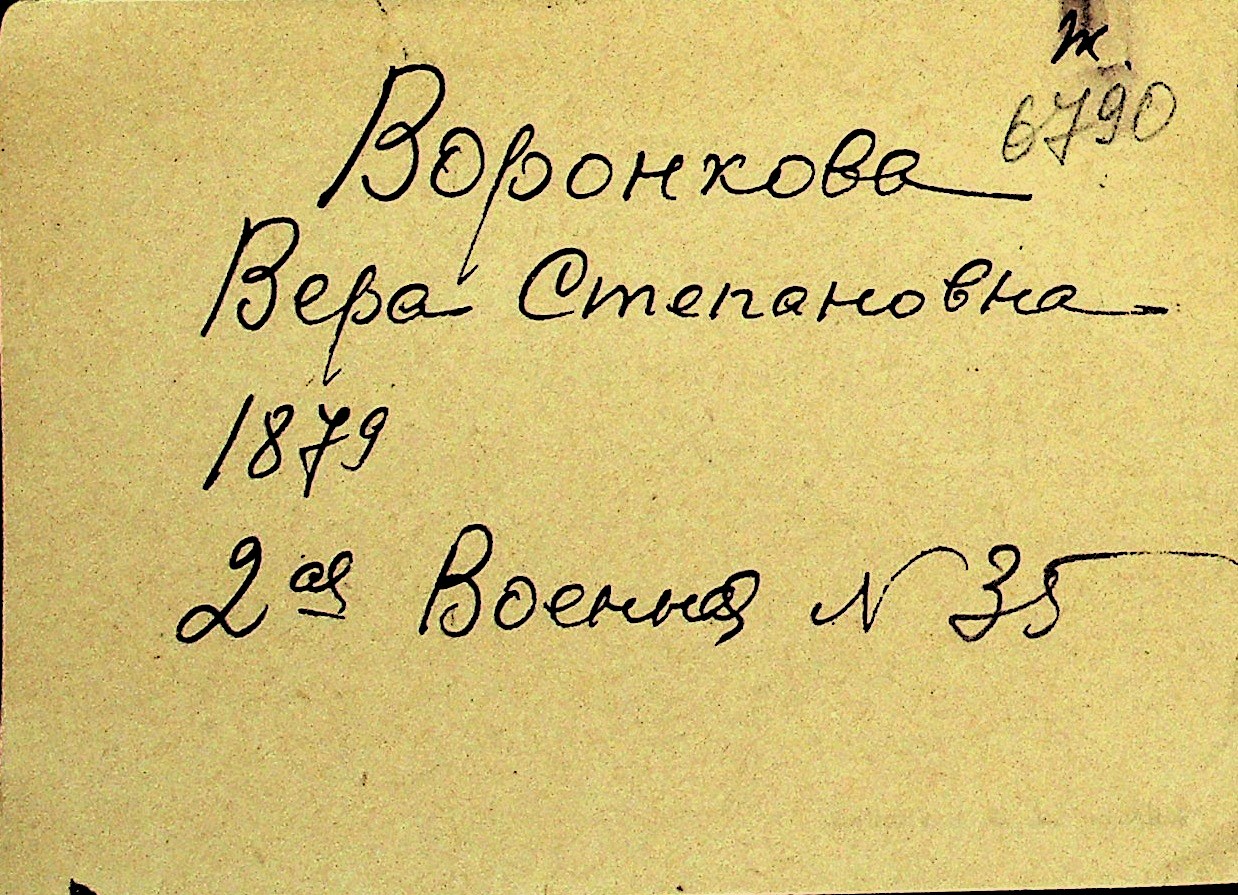 ж.
6790
Воронкова
Вера Степановна
1879
2ая Военная N 35